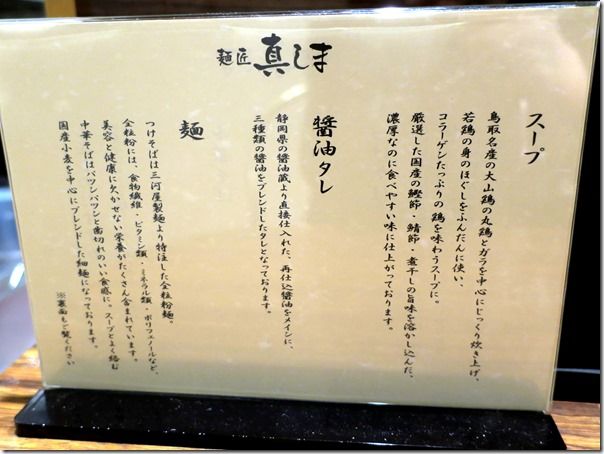 麺匠 真しま
スープ
鳥取名産の大山鶏の丸鶏とガラを中心にじっくり炊き上げ、
若鶏の身のほぐしをふんだんに使い、
コラーゲンたっぷりの鶏を味わうスープに。
厳選した国産の鰹節・鯖節・煮干しの旨味を溶かし込んだ、
濃厚なのに食べやすい味に仕上がっております。
醤油タレ
静岡県の醤油蔵より直接仕入れた、再仕込醤油をメインに、
三種類の醤油をブレンドしたタレとなっております。
麺
つけそばは三河屋製麺より特注した全粒粉麺。
全粒粉には、食物繊維・ビタミン類・ミネラル類・ポリフェノールなど、
美容と健康に欠かせない栄養がたくさん含まれています。
中華そばはパツンパツンと歯切れのいい食感に。スープとよく絡む
国産小麦を中心にブレンドした細麺になっております。
※裏面もご覧ください